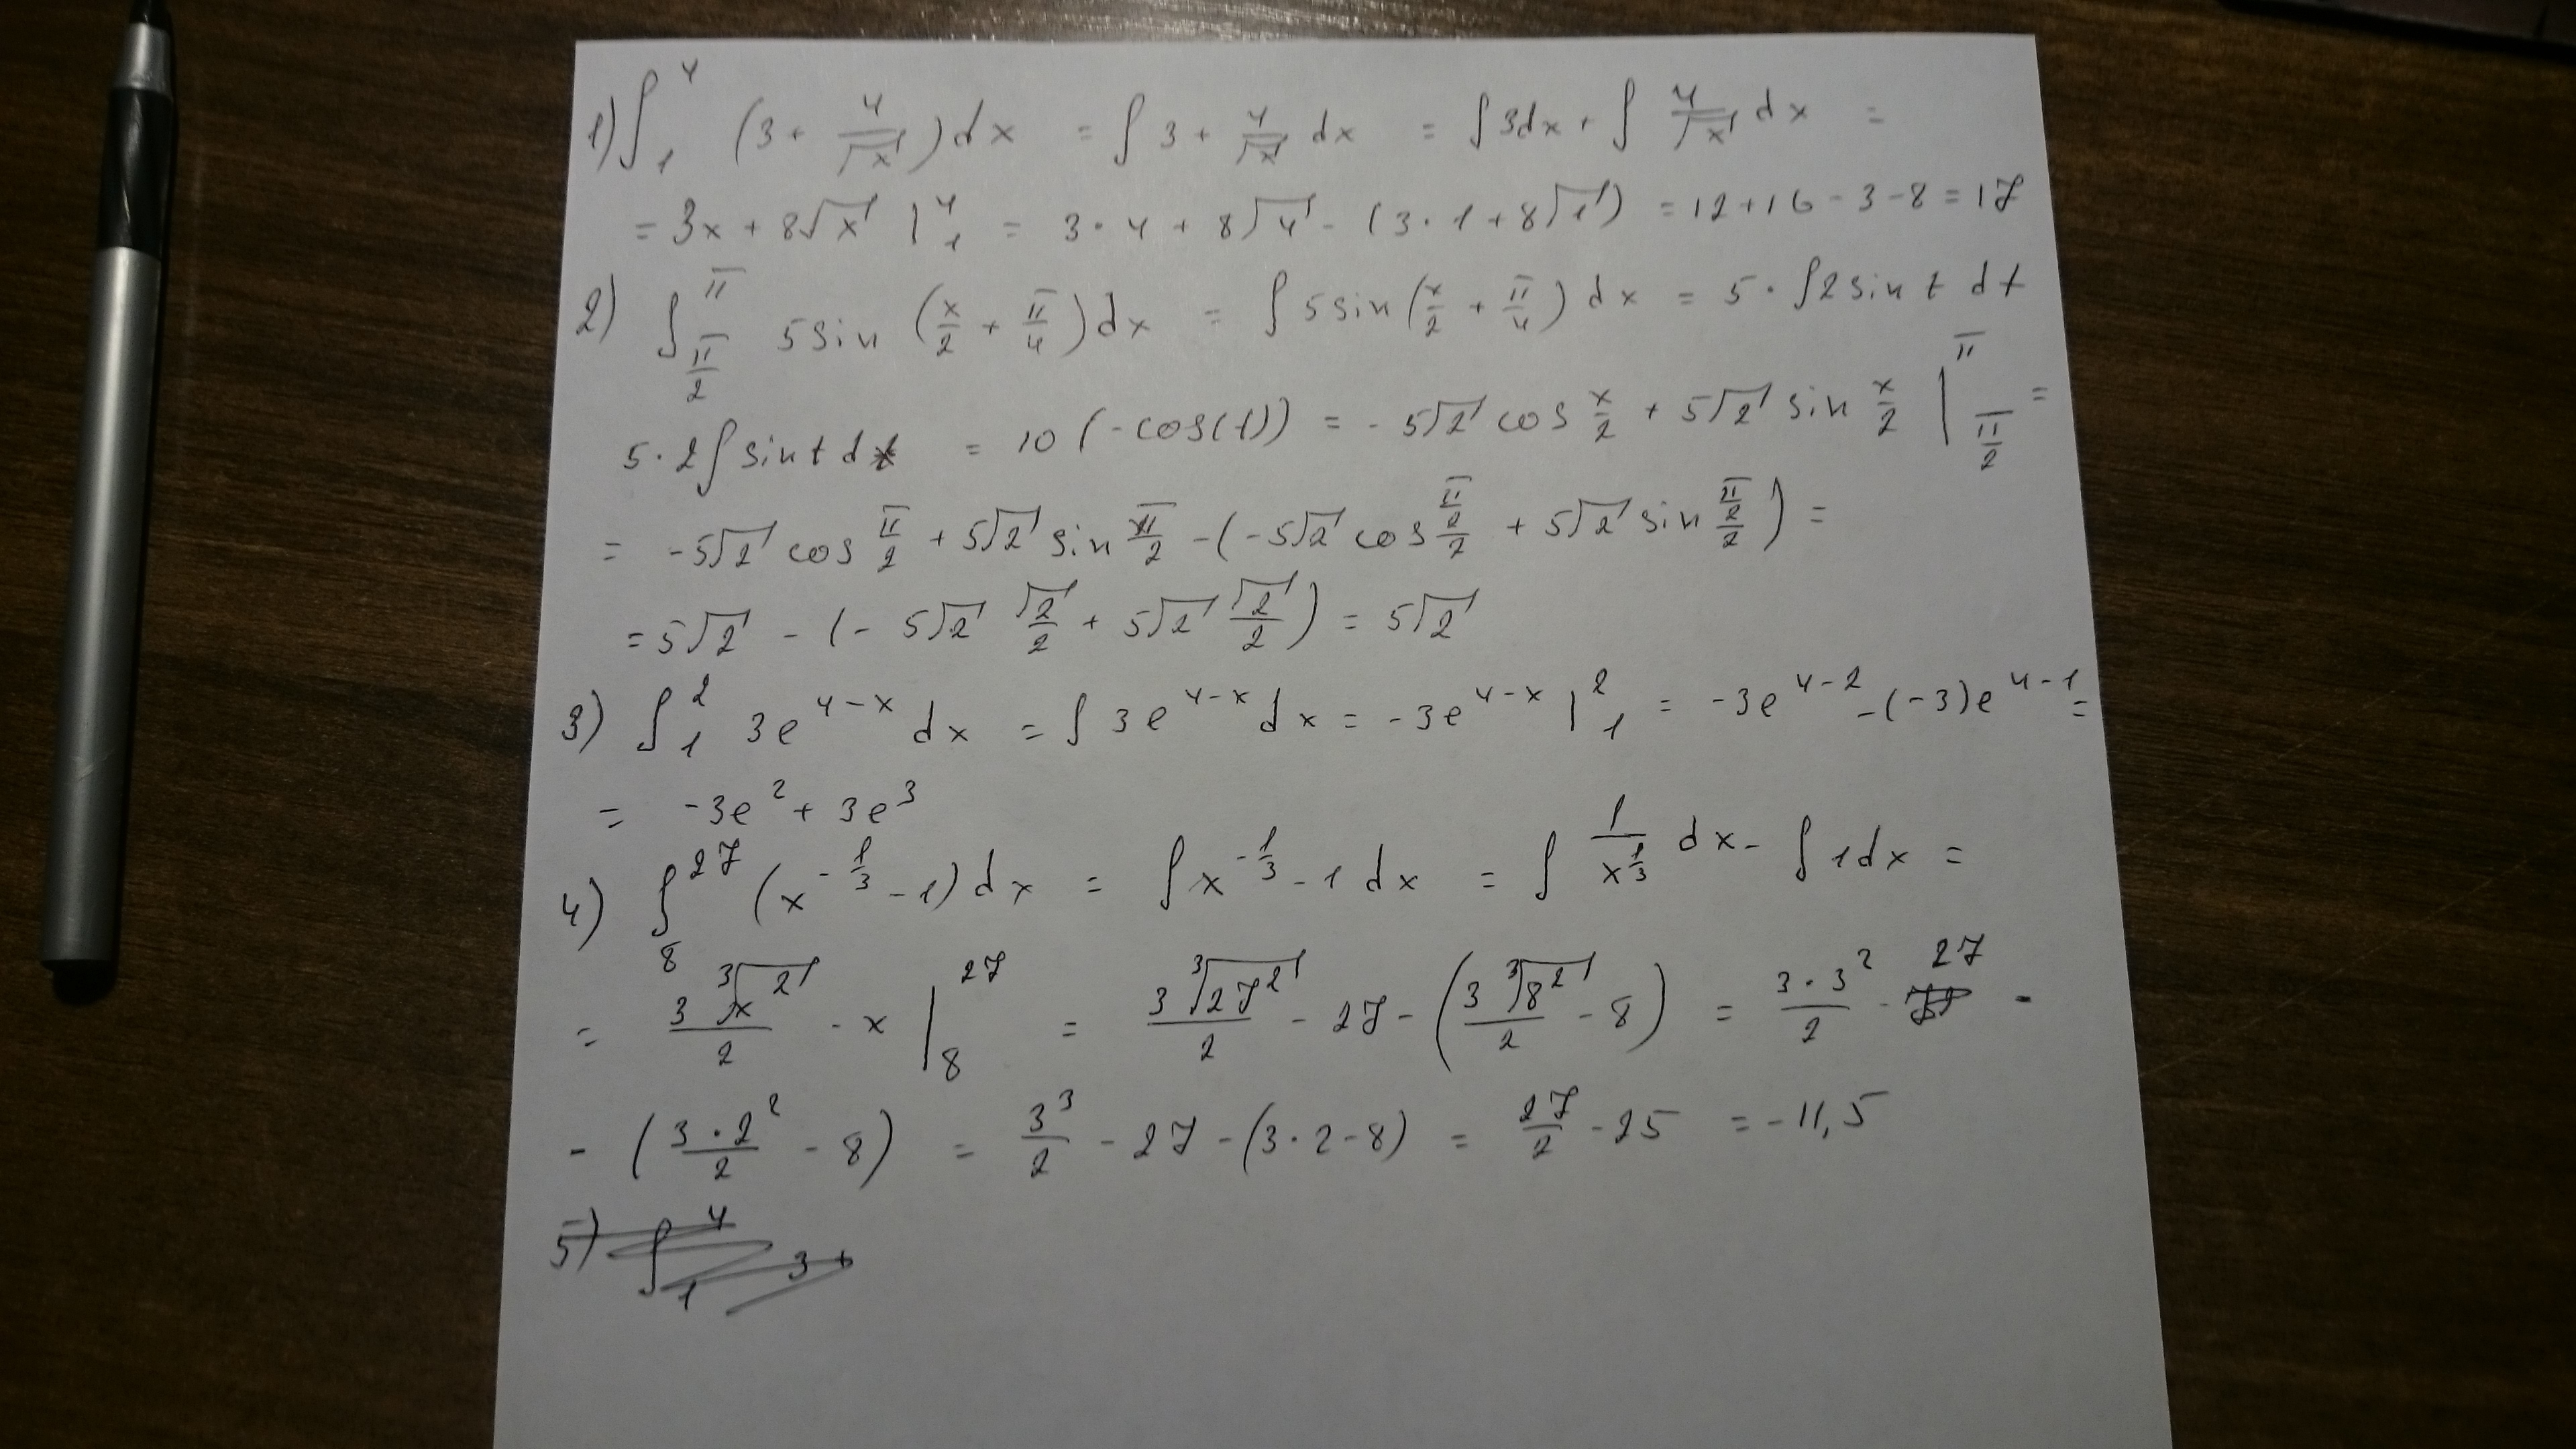 1) ∫₁⁴ (3 + 4/√x) dx = ∫ 3 + 4/√x dx = ∫ 3dx + ∫ 4/√x dx =
= 3x + 8√x |₁⁴ = 3·4 + 8√4 - (3·1 + 8√1) = 12 + 16 - 3 - 8 = 17
2) ∫_{π/2}^{π} 5 sin (x/2 + π/4) dx = ∫ 5 sin (x/2 + π/4) dx = 5 · ∫ 2 sin t dt
5·2 ∫ sin t dt = 10 (-cos(t)) = -5√2 cos x/2 + 5√2 sin x/2 |_{π/2}^{π} =
= -5√2 cos π/2 + 5√2 sin π/2 - (-5√2 cos (π/2)/2 + 5√2 sin (π/2)/2) =
= 5√2 - (- 5√2 √2/2 + 5√2 √2/2) = 5√2
3) ∫₁² 3e^{4-x} dx = ∫ 3e^{4-x} dx = -3e^{4-x} |₁² = -3e^{4-2} - (-3)e^{4-1} =
= -3e² + 3e³
4) ∫₈²⁷ (x^{-1/3} - 1) dx = ∫ x^{-1/3} - 1 dx = ∫ 1/x^{1/3} dx - ∫ 1dx =
= 3∛x²/2 - x |₈²⁷ = 3∛27²/2 - 27 - (3∛8²/2 - 8) = 3·3²/2 - 27 -
- (3·2²/2 - 8) = 3³/2 - 27 - (3·2 - 8) = 27/2 - 25 = -11,5
5) ∫₁⁴ 3 +